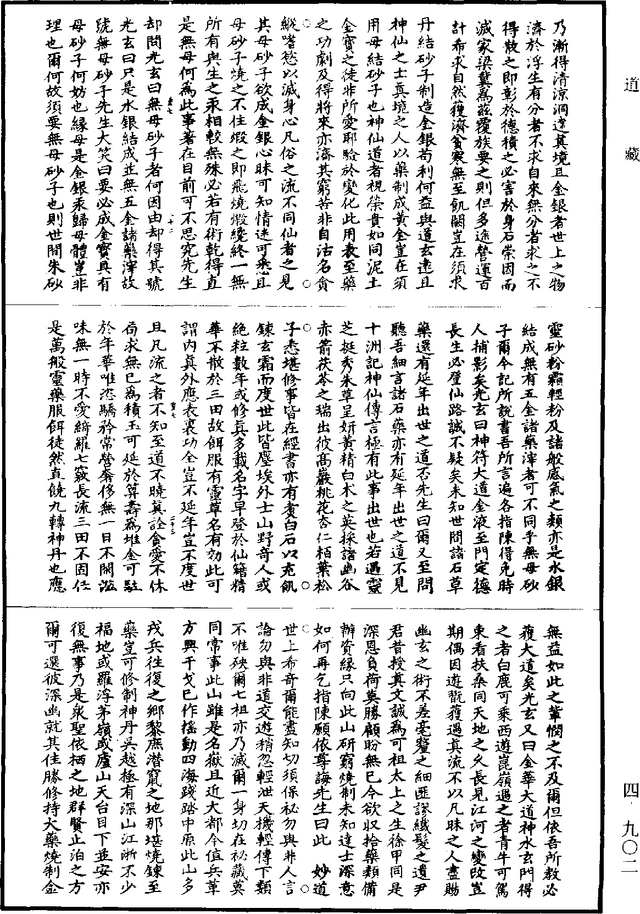 道 藏
乃漸得清涼洞達真境且金銀者世上之物
濟於浮生有分者不求自來無分者求之不
得散之即彰於德積之必害於身石崇因而
滅家梁冀為茲覆族要之則但多途營運百
計希求自然獲濟貧窶無至飢關豈在須求
丹結砂子制造金銀苟利何益與道玄遠且
神仙之士真境之人以藥制成黃金豈在須
用母結砂子也神仙道者視榮貴如同泥土
金寶之徒非所愛耶驗於變化此用表至藥
之功劇及得將來亦濟其窮苦非自沽名貪
縱嗜慾以滅身心凡俗之流不同仙者之見
其母砂子欲成金銀心昧可知情迷可悉且
母砂子燒之不住煅之即飛燒煅纔終一無
所有與生之汞相較無殊必若有術乾得直
是無母何為此事著在目前可不思究先生
却問光玄曰無母砂子者何因由却得其號
光玄曰只是水銀結成並無五金諸藥滓故
號無母砂子先生大笑曰要必成金寶具有
母砂子何妨也緣母是金銀汞歸母體豈非
理也爾何故須要無母砂子也則世間朱砂
靈砂粉霜輕粉及諸般底氣之類亦是水銀
結成無有五金諸藥滓者可不同乎無母砂
子爾今記所說書吾所言遍各指陳得免時
人捕影矣光玄曰神符大道金液至門定德
長生必登仙路誠不疑矣未知世間諸石草
藥還有延年出世之道否先生曰爾又至問
聽吾細言諸石藥亦有延年出世之道不見
十洲記神仙傳言極有此事出世也若遇靈
芝挺秀朱草呈妍黃精白朮之英採諸幽谷
赤箭茯苓之瑞出彼高巖桃花杏仁栢葉松
子悉堪修事皆在經書亦有賓白石以充飢
鍊玄霜而度世此皆塵埃外士山野奇人或
絕粒數年或修真多載名字早登於仙籍精
華不散於三田故餌服有靈尊名有効此可
謂內真外應表裏功全豈不延年豈不度世
且凡流之者不知至道不曉真詮貪愛不休
苟求無已為積玉可延於尊壽為堆金可駐
於年華唯恣驕矜常營奢侈無一日不開滋
味無一時不愛綺羅七竅長流三田不固任
是萬般靈藥服餌徒然直饒九轉神丹也應
無益如此之輩憫之不及爾但依吾所教必
獲大道矣光玄又曰金華大道神水玄門得
之者白鹿可乘西遊崑嶺遇之者青牛可駕
東看扶桑同天地之久長見江河之變改豈
期偶因遊翫獲遇真流不以凡昧之人盡賜
幽玄之術不差毫釐之細匪謬纖髮之遺尹
君昔授真文誠為可祖太上之生徐甲同是
深恩負荷無勝顧盼無已今欲收拾藥類備
辦資緣只向此山研窮燒制未知達士深意
如何再乞指陳願依尊誨先生曰此 妙道
世上希奇爾能盡知切須保祕勿與非人言
論勿與非道交遊稍忽輕泄天機輕傳下類
不唯殃爾七祖亦乃滅爾一身切在祕藏莫
同常事此山雖是名嶽且近大都今值兵革
方興干戈已作搖動四海踐踏中原此山多
戎兵往復之鄉黎庶潛竄之地那堪燒鍊至
藥豈可修制神丹吳越極有深山江浙不少
福地或羅浮茅嶺或廬山天台目下並安亦
復無事乃是眾聖依栖之地群賢止泊之方
爾可選彼深幽就其佳勝修持大藥燒制金
四·九〇二